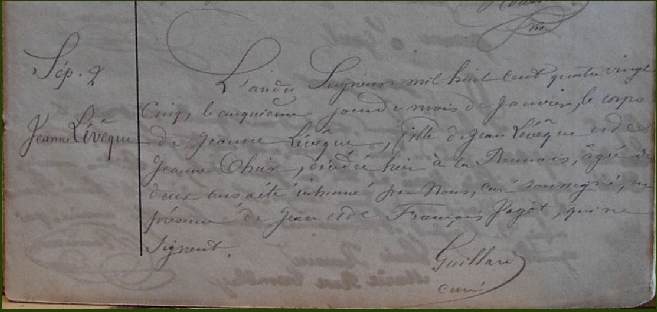 Sép. 2
Jeanne Lévêque
L'an du Seigneur mil huit cent quatre vingt
cinq, le cinquième jour de mois de Janvier, le corps
de Jeanne Lévêque, fille de Jean Lévêque et de
Jeanne Chais, décédé hier à la, âgé de
deux ans a été inhumé par Nous, curé soussigné, en
présence de Jean et de François Pagot, qui ne
signent.
Guillard
curé